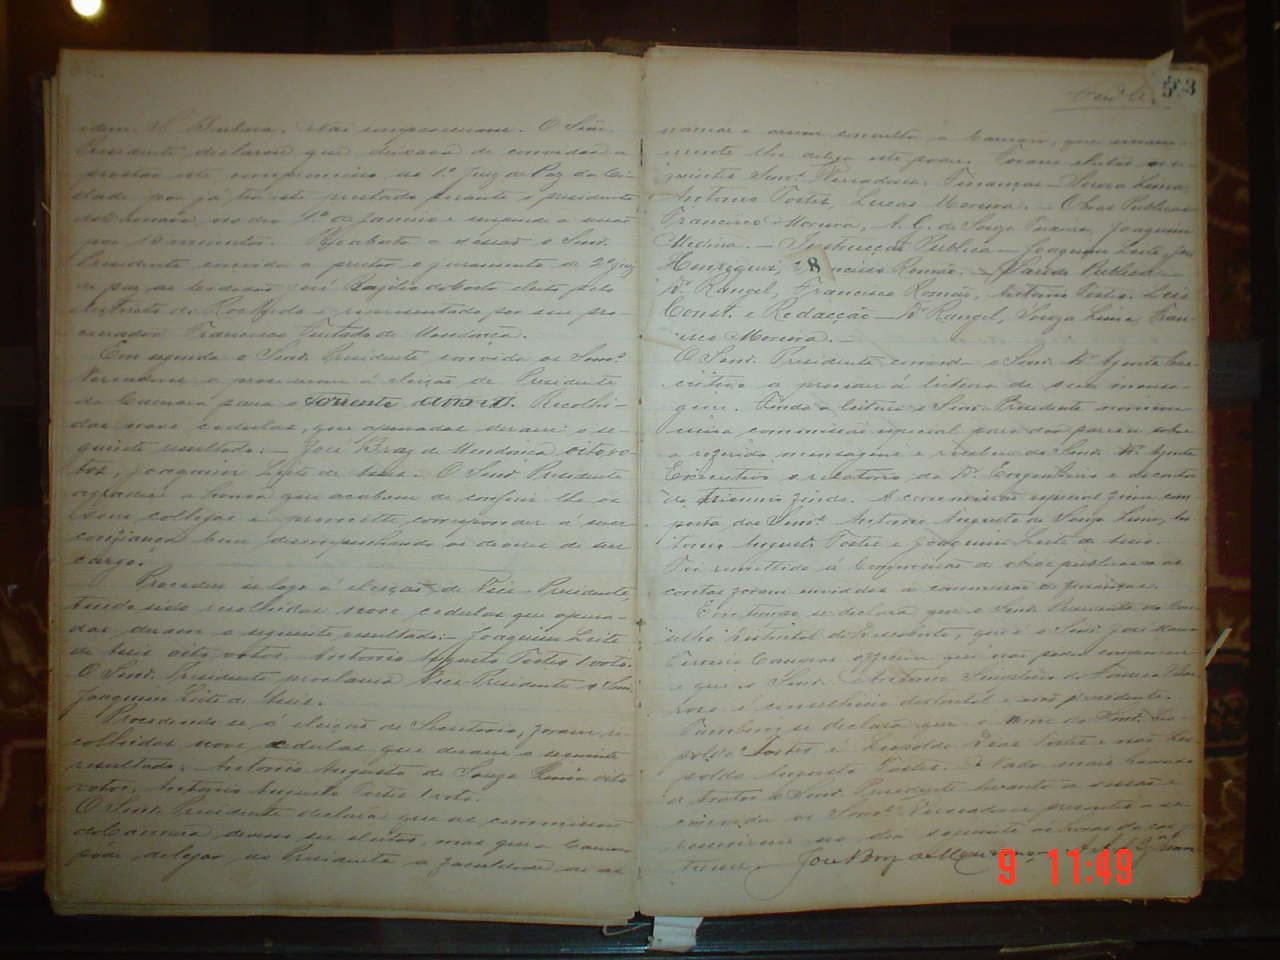 idem. S. Barbara. Não compareceram. O Snr.
Presidente declarou que deixava de convidar a
prestar este compromisso ao 1.º Juiz de Paz da Ci-
dade por já ter este prestado perante o presidente
da Camara no dia 1º de Janeiro e suspende a sessão
por 15 minutos. Reaberta a sessão o Snr.
Presidente convida a prestar o juramento de 2º juiz
de paz ao cidadão José Basilio da Costa eleito pelo
districto de e representado por seu pro-
curador Francisco Furtado de Mendonça.
Em seguida o Snr. Presidente convida os Snrs.
Vereadores a procederem á eleição de Presidente
da Camara para o corrente anno. Recolhi-
das nove cedulas, que apuradas deram o se-
guinte resultado: – José Braz de Mendonça oito vo-
tos, Joaquim Leite de Assis. O Snr. Presidente
agradece a honra que acabam de conferir-lhe os
seus collegas e promette corresponder á sua
confiança bem desempenhando os deveres de seu
cargo.
Procedeu-se logo á eleição de Vice-Presidente,
tendo sido recolhidas nove cedulas que apura-
das deram o seguinte resultado: – Joaquim Leite
de Assis oito votos, Antonio Augusto Tostes 1 voto.
O Snr. Presidente proclama Vice-Presidente o Snr.
Joaquim Leite de Assis.
Procedendo-se á eleição de Secretario, foram re-
colhidas nove cedulas que deram o seguinte
resultado: Antonio Augusto de Souza Lima oito
votos, Antonio Augusto Tostes 1 voto.
O Snr. Presidente declara que as commissões
da Camara devem ser eleitas, mas que a Camara
póde delegar ao Presidente a faculdade de as
53
nomear e assim consulta a Camara, que unani-
mente lhe delega este poder. Foram eleitos os se-
guintes Snrs. Vereadores. Finanças – Souza Lima,
Antonio Tostes, Lucas Moreira. – Obras Publicas
Francisco Moreira, A. G. de Souza Joaquim
Medina. – Instrucção Publica – Joaquim Leite, José
Henriques, Francisco Romão. – Saúde Publica –
8
Dr. Rangel, Francisco Romão, Antonio Tostes. Leis
Const. e Redacção – Dr. Rangel, Souza Lima, Fran-
cisco Moreira.
O Snr. Presidente convida o Snr. Dr. Agente Exe-
cutivo a proceder á leitura de sua mensa-
gem. Finda a leitura o Snr. Presidente nomeou
uma commissão especial para dar parecer sobre
a referida mensagem e recebeu do Snr. Dr. Agente
Executivo o relatorio do Dr. Engenheiro e as contas
do triennio findo. A commissão especial ficou com-
posta dos Snrs. Antonio Augusto de Souza Lima, An-
tonio Augusto Tostes e Joaquim Leite de Assis.
Foi remettido á Commissão de obras publicas e as
contas foram enviadas á commissão de finanças.
Em tempo se declara que o Snr. Presidente do Con-
selho Districtal de Descoberto, que é o Snr. José Maria
Ferreira Campos officiou que não podia comparecer
e que o Snr. Antonio Simplicio da Fonseca
é conselheiro districtal e não presidente.
Tambem se declara que o nome do Snr. Leo-
poldo Tostes é Leopoldo Dias Tostes e não Leo-
poldo Augusto Tostes. Nada mais havendo
a tratar o Snr. Presidente levanta a sessão e
convida os Snrs. Vereadores presentes a se
reunirem no dia seguinte ás horas do cos-
tume. José Braz de Mendonça
9 11:49